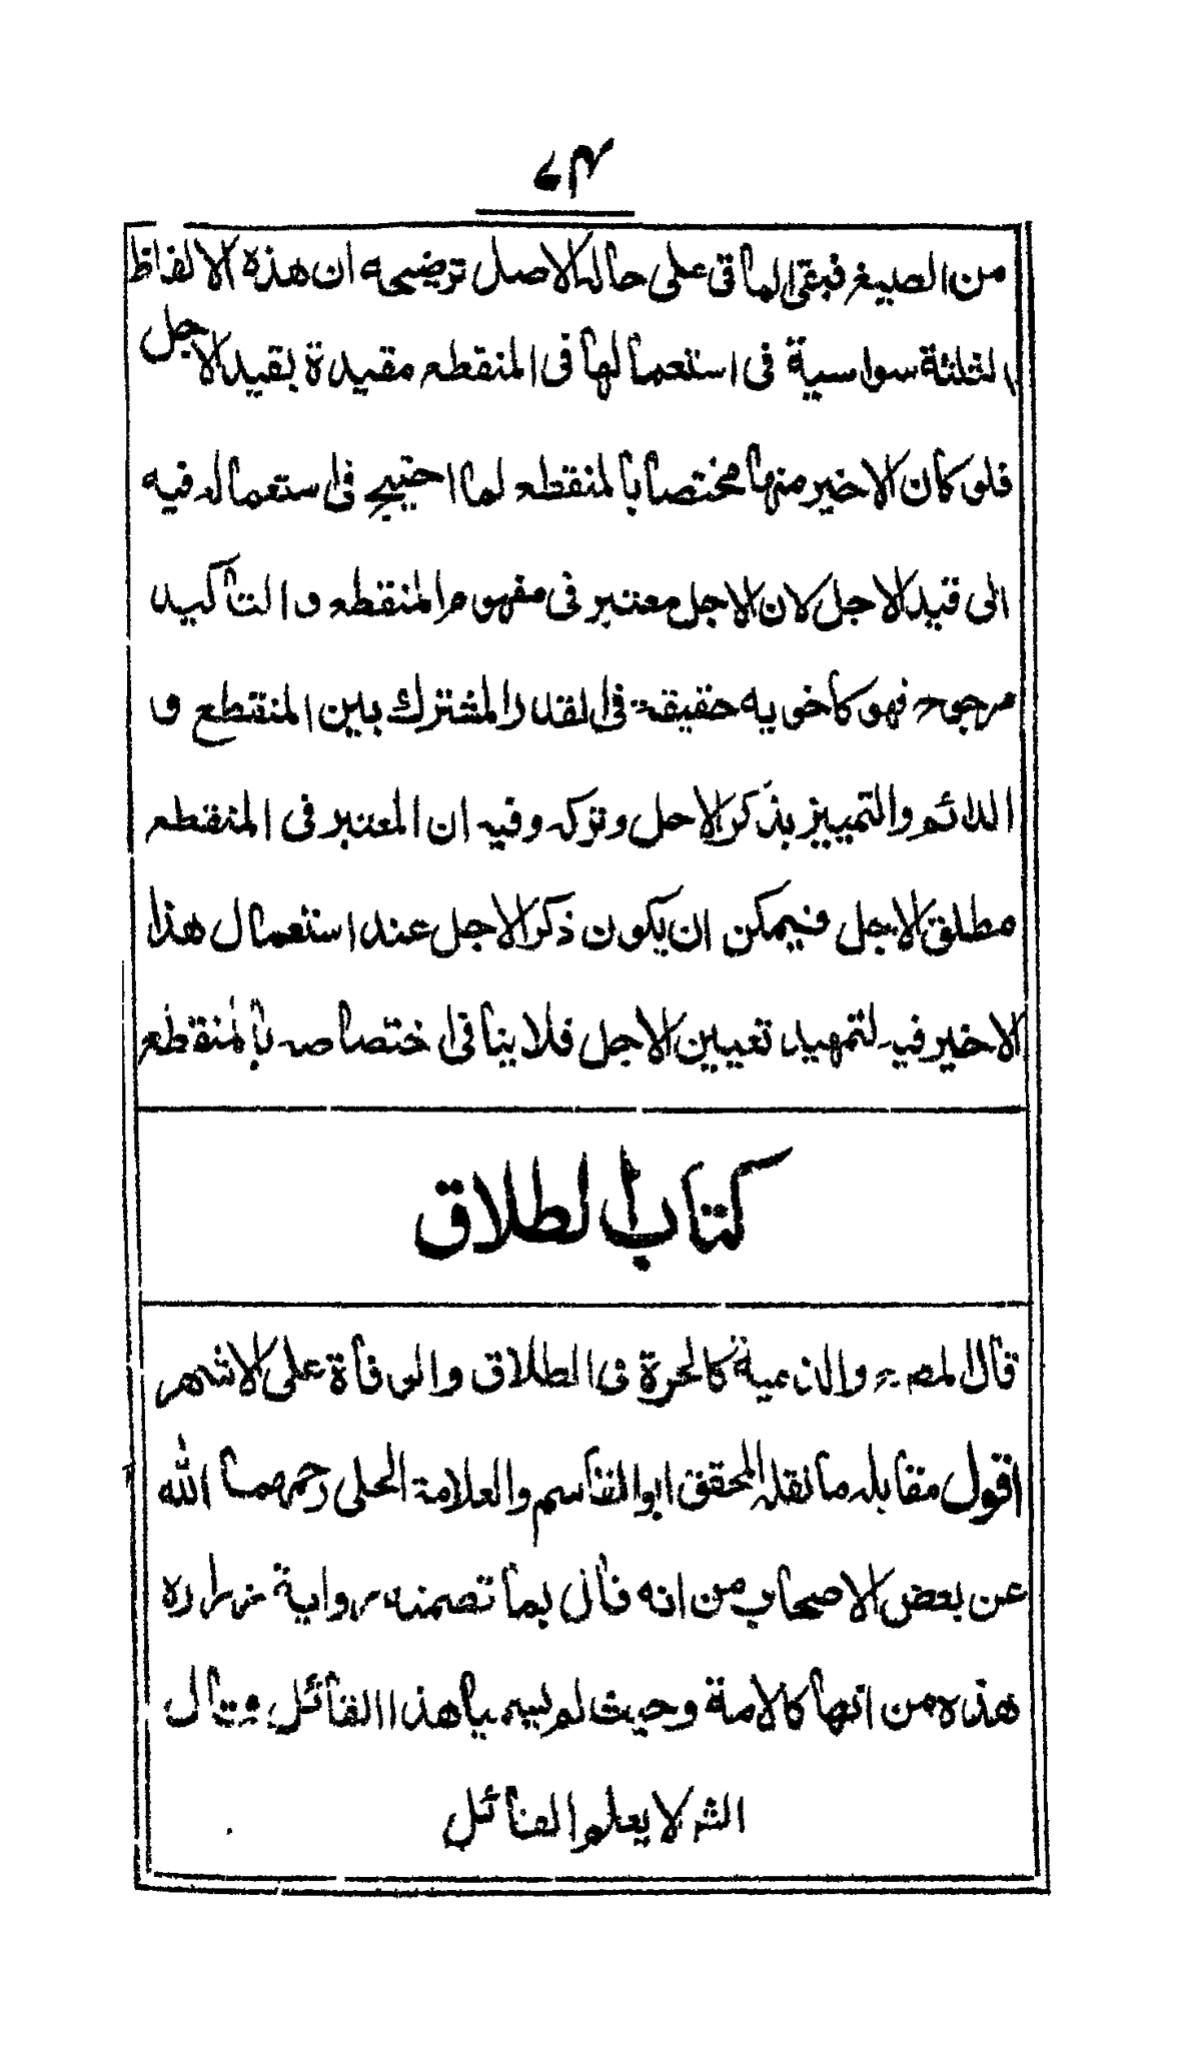 من الصیغ فبقی الباقی علی حاله الاصل توضیحه ان هذه الالفاظ
الثلثة سواسیة فی استعمالها فی المنقطع مقیدة بقید الاجل
فلو کان الاخیر منها مختصا بالمنقطع لما احتیج فی استعماله فیه
الی قید الاجل لان الاجل معتبر فی مفهوم المنقطع و التأکید
مرجوح فهو کأخویه حقیقة فی القدر المشترك بین المنقطع و
الدائم والتمییز بذکر الاجل وترکه وفیه ان المعتبر فی المنقطع
مطلق الاجل فیمکن ان یکون ذکر الاجل عند استعمال هذا
الاخیر فیه لتمهید تعیین الاجل فلا ینافی اختصاصه بالمنقطع
کتاب الطلاق
قال المصـ والذمیة کالحرة فی الطلاق والوفاة علی الاشهر
اقول مقابله ما نقله المحقق ابو القاسم والعلامة الحلی رحمهما الله
عن بعض الاصحاب من انه قال بما تضمنه روایة زرارة
هذه من انها کالامة وحیث لم یسمیا هذا القائل وقال
الشـ لا یعلم القائل